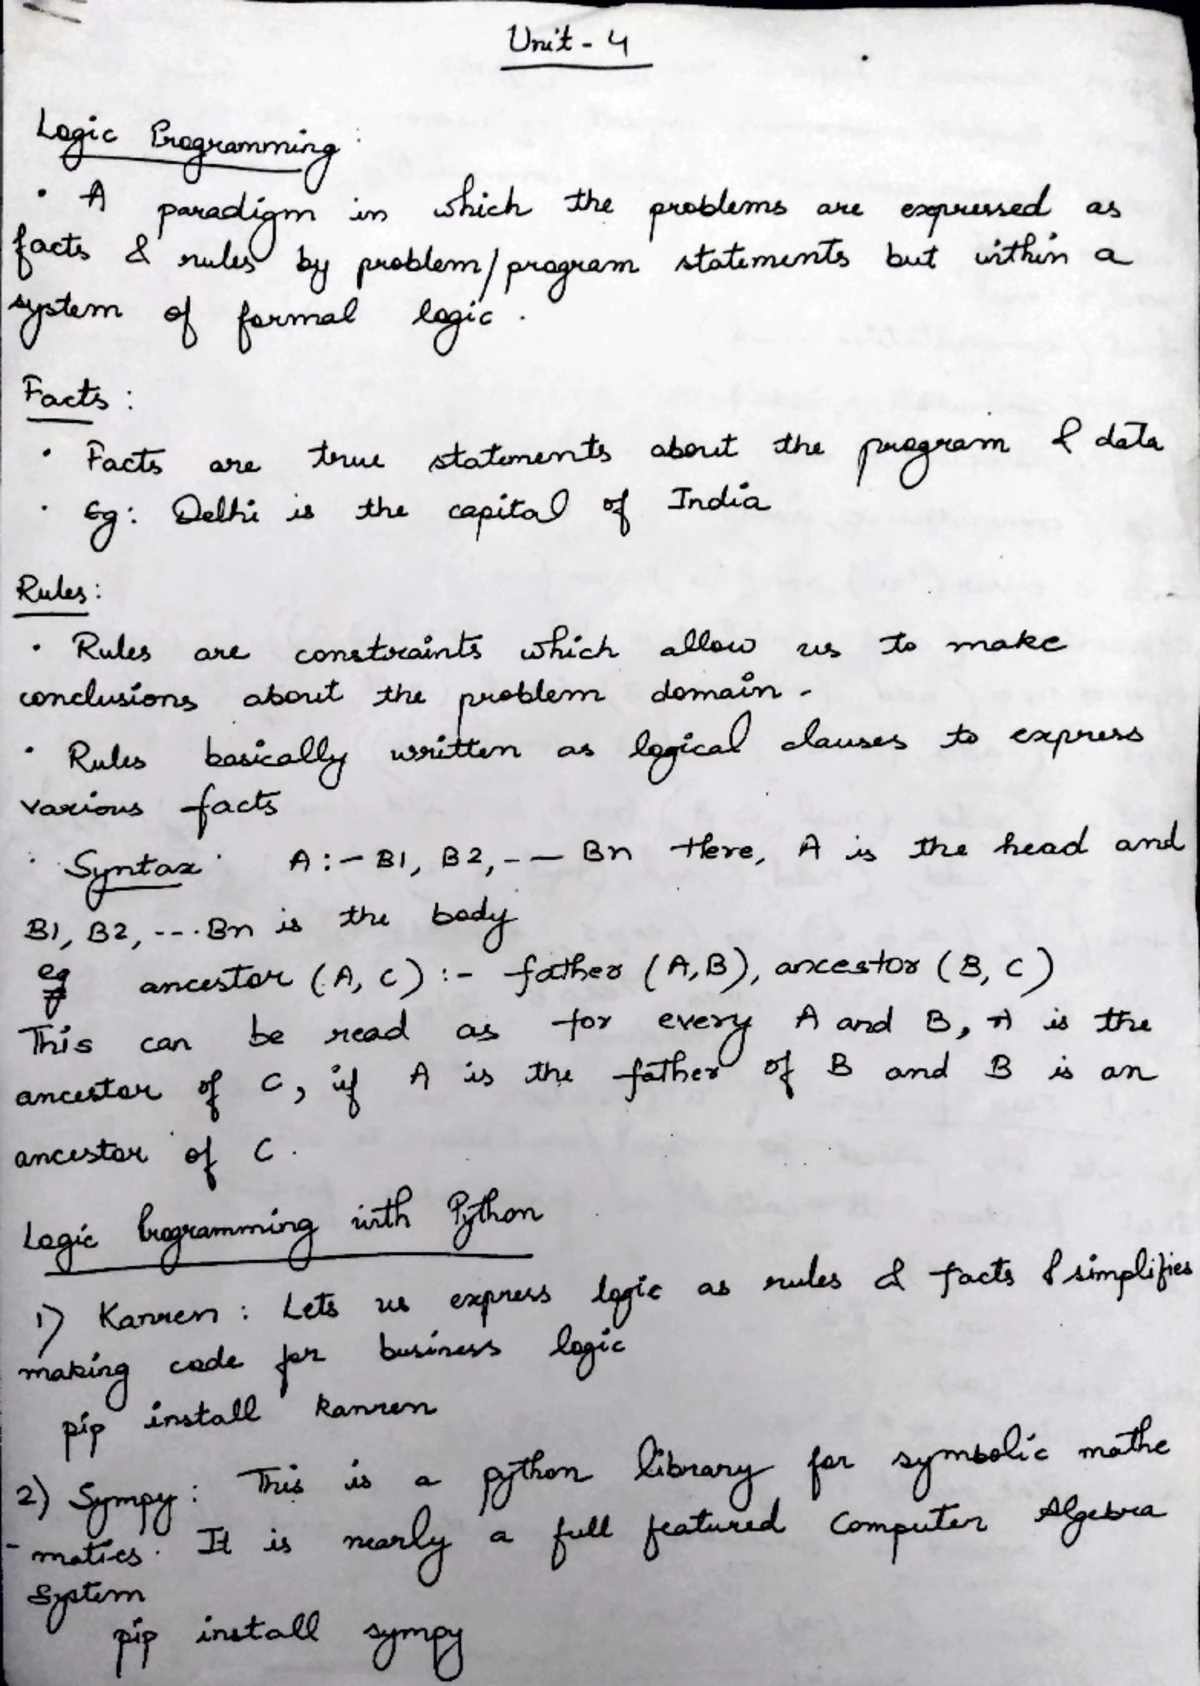 Unit - 4
Logic Programming :
• A paradigm in which the problems are expressed as
facts & rules by problem/program statements but within a
system of formal logic .
Facts :
• Facts are true statements about the program & data
• Eg: Delhi is the capital of India
Rules :
• Rules are constraints which allow us to make
conclusions about the problem domain .
• Rules basically written as logical clauses to express
various facts
• Syntax : A :- B1, B2, - — Bn Here, A is the head and
B1, B2, --- . Bn is the body
eg ancestor (A, C) :- father (A, B), ancestor (B, C)
This can be read as for every A and B, A is the
ancestor of C, if A is the father of B and B is an
ancestor of C .
Logic Programming with Python
1) Kanren : Lets us express logic as rules & facts & simplifies
making code for business logic
pip install kanren
2) Sympy : This is a python library for symbolic mathe
- matics . It is nearly a full featured Computer Algebra
System
pip install sympy